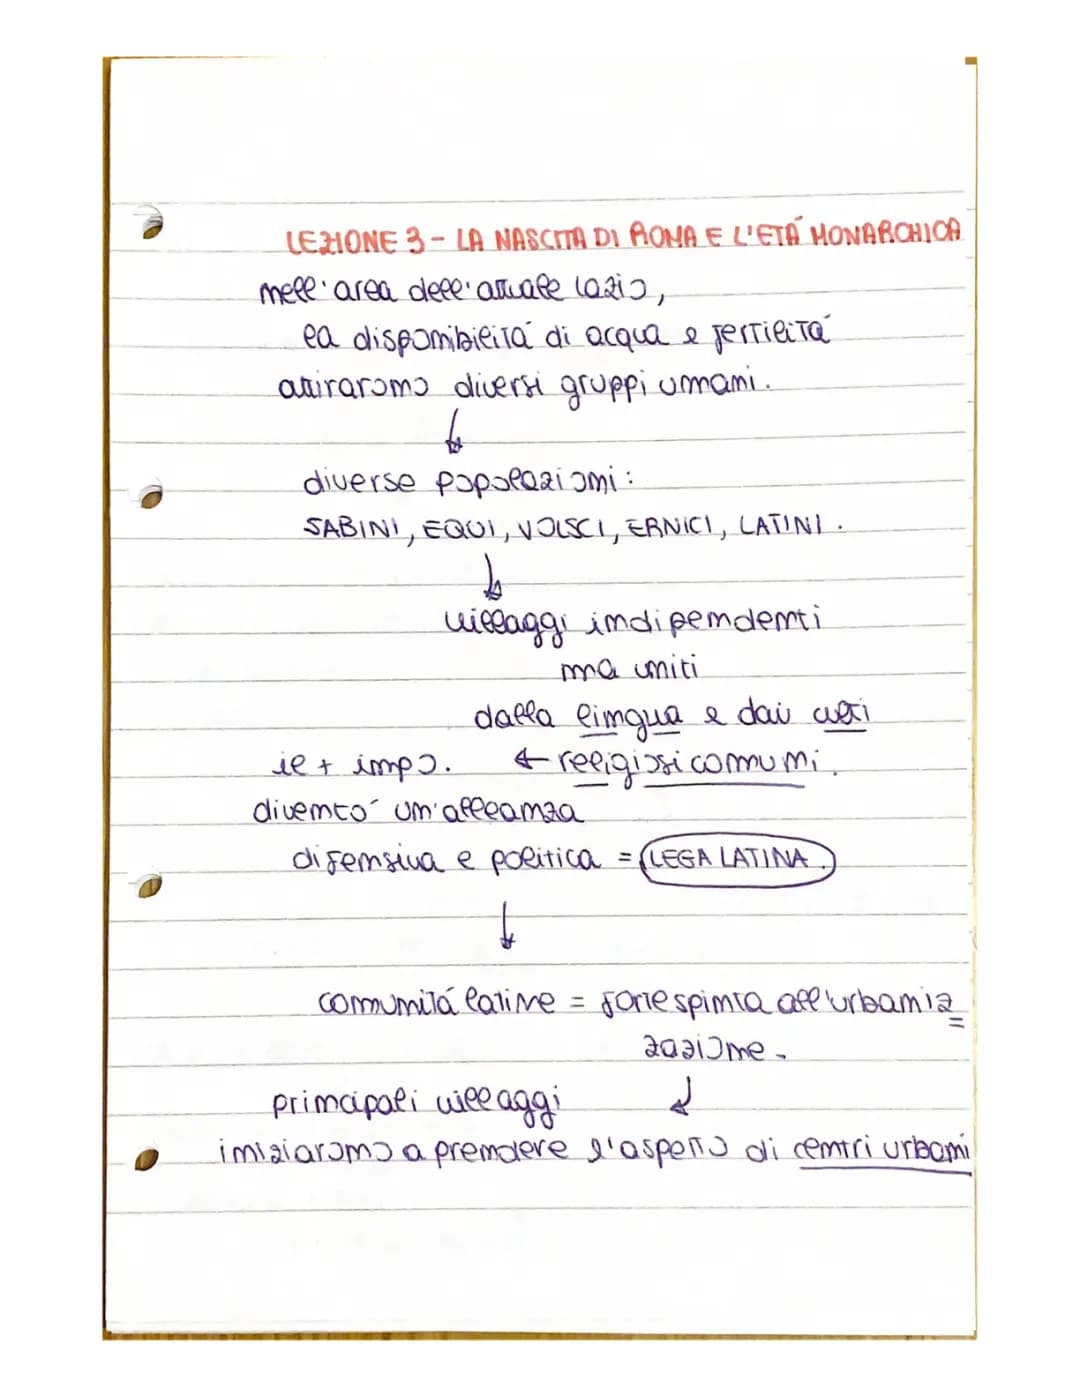 LEZIONE 3 - LA NASCITA DI ROMA E L'ETÁ MONARCHICA
nell'area dell'attuale Lazio,
la disponibilitá di acqua e fertilitá
attirarono diversi gruppi umani.
↓
diverse popolazioni:
SABINI, EQUI, VOLSCI, ERNICI, LATINI.
↓
villaggi indipendenti
ma uniti
dalla lingua e dai culti
il + impo. ← religiosi comuni.
diventó un'alleanza
difensiva e politica = LEGA LATINA.
↓
comunitá latine = forte spinta all'urbaniz
zazione.
principali villaggi ↓
iniziarono a prendere l'aspetto di centri urbani